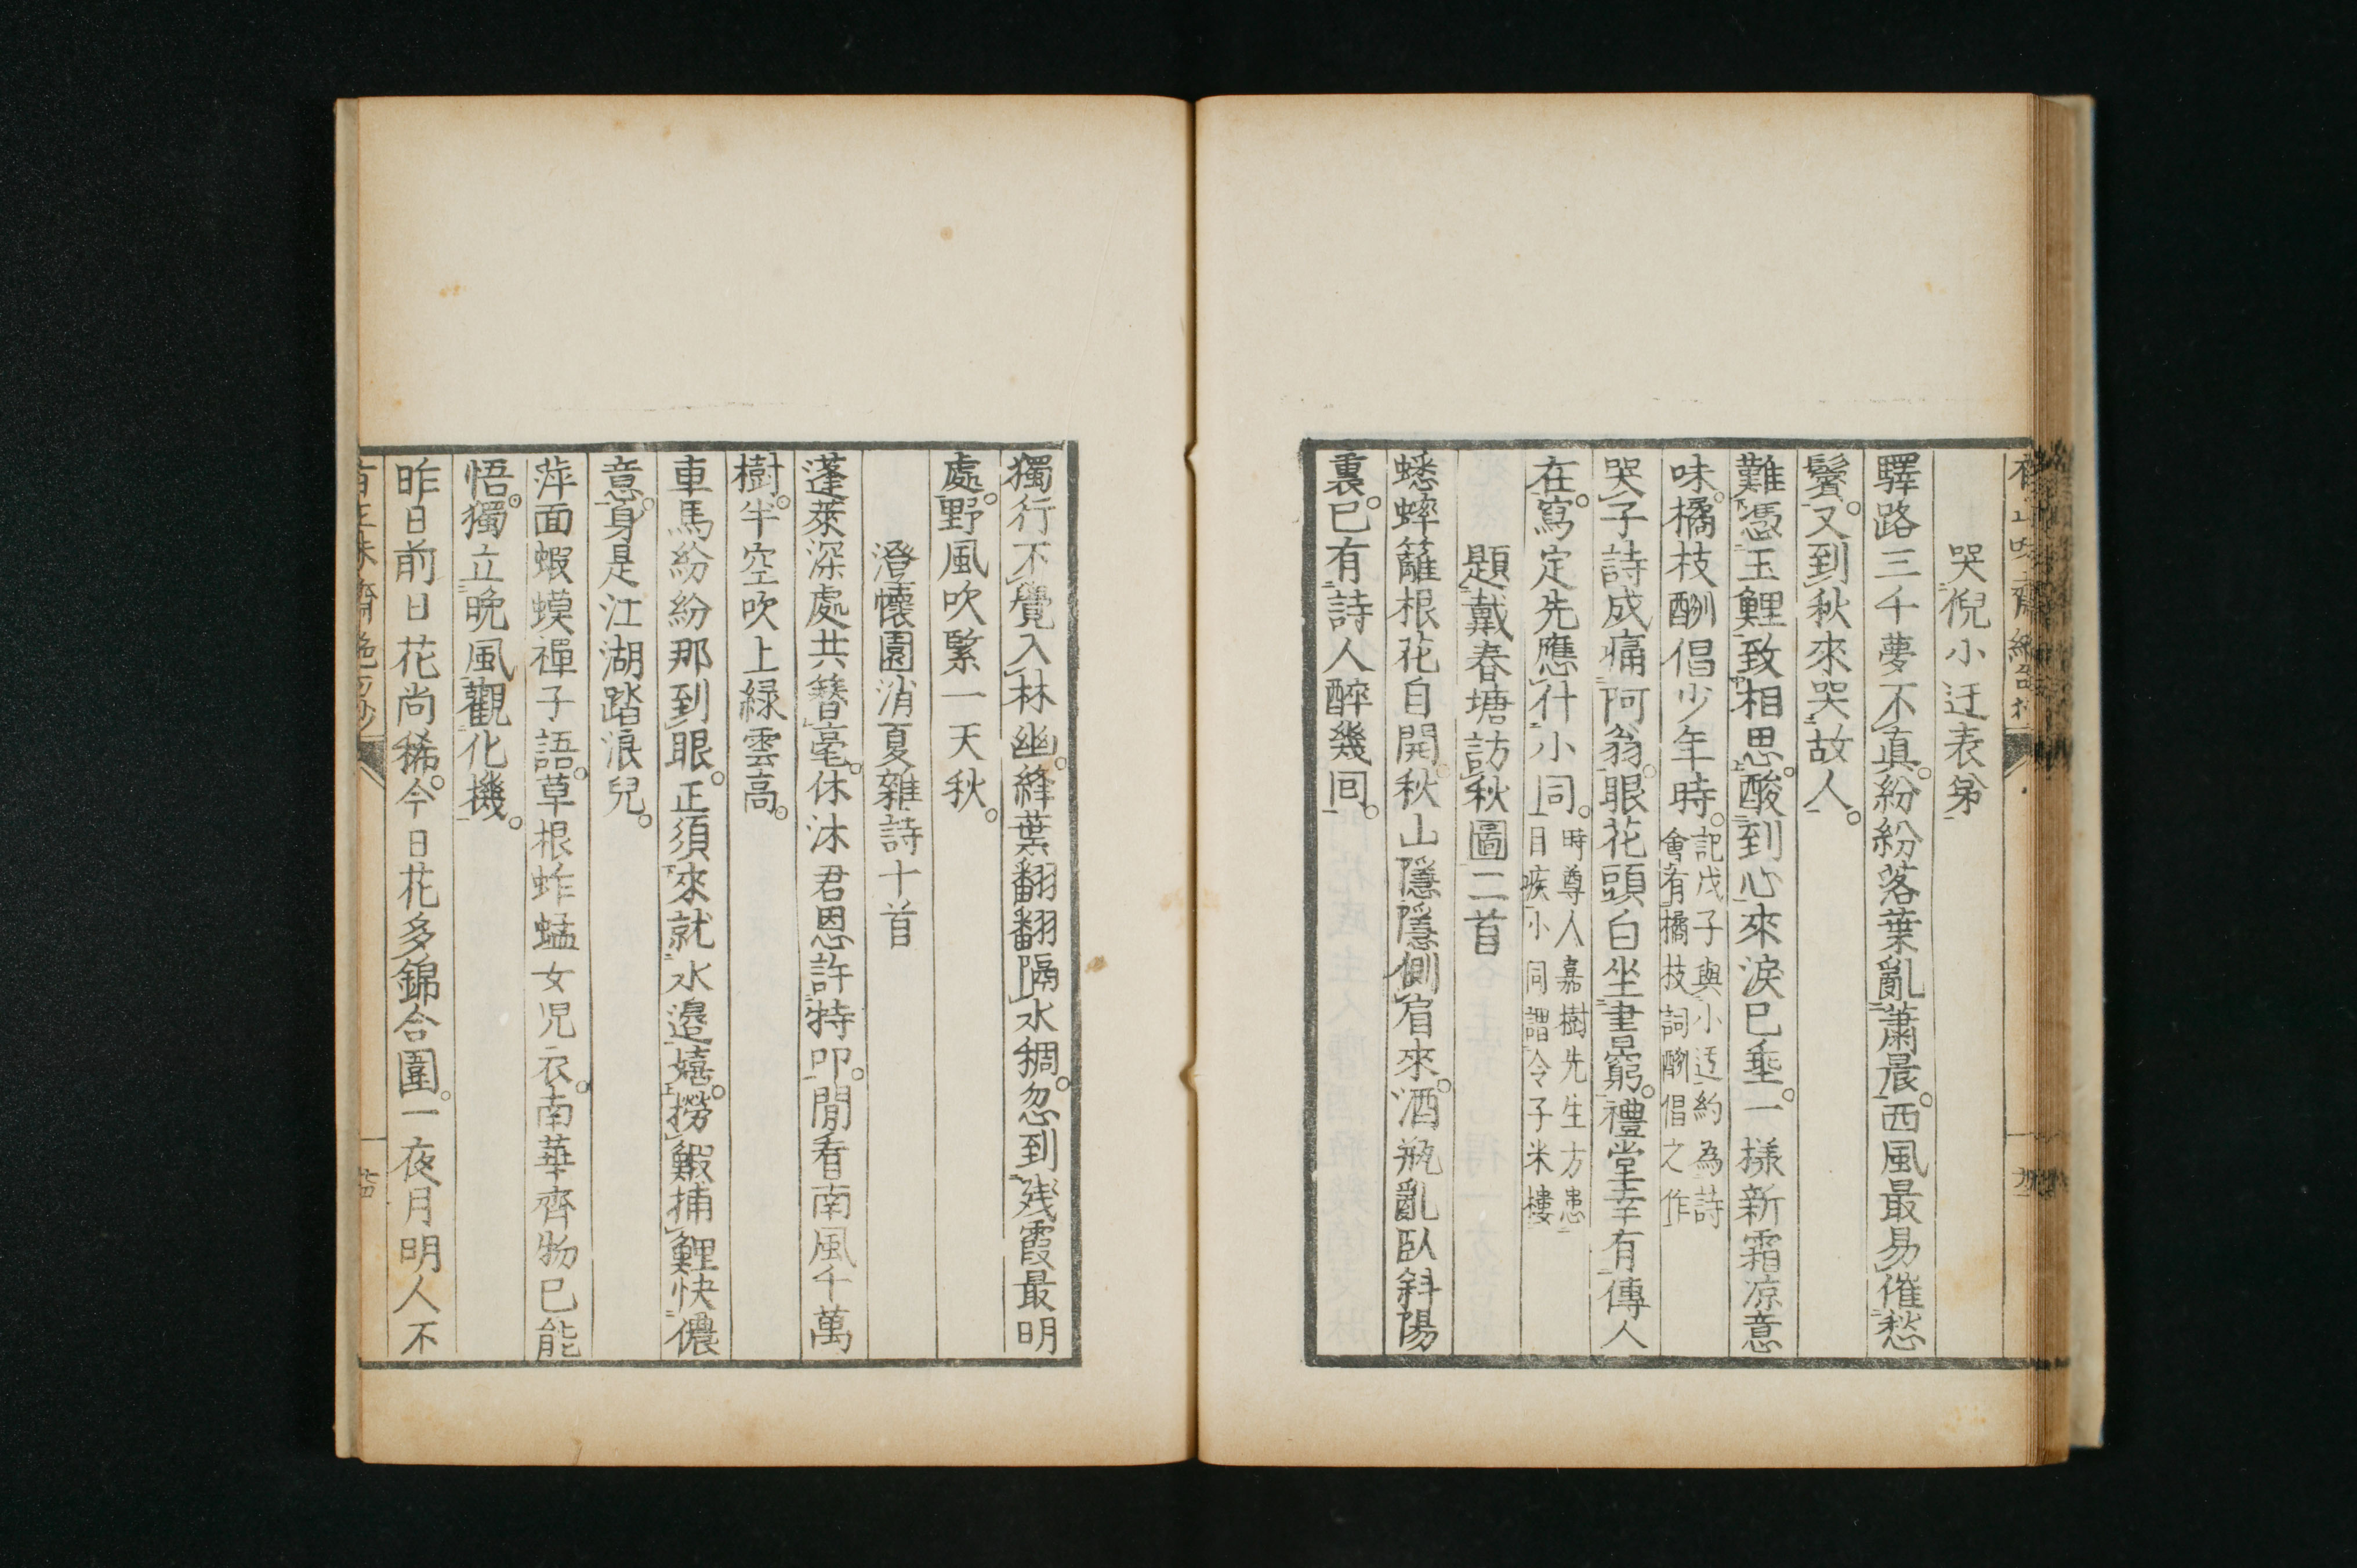 哭倪小迂表弟
驛路三千夢不真。紛紛落葉亂蕭晨。西風最易催愁
鬢。又到秋來哭故人。
難憑玉鯉致相思。酸到心來淚已垂。一樣新霜凉意
味。橘枝酬倡少年時。記戊子與小迂約為詩會有橘枝詞酬倡之作
哭子詩成痛阿翁。眼花頭白坐書窮。禮堂幸有傳人
在。寫定先應什小同。時尊人嘉樹先生方患目疾小同謂令子米樓
題戴春塘訪秋圖二首
蟋蟀籬根花自開。秋山隱隱側眉來。酒瓶亂臥斜陽
裏。已有詩人醉幾回。
獨行不覺入林幽。絳葉翻翻隔水稠。忽到殘霞最明
處。野風吹緊一天秋。
澄懷園消夏雜詩十首
蓬萊深處共簪毫。休沐君恩許特叨。閒看南風千萬
樹。半空吹上綠雲高。
車馬紛紛那到眼。正須來就水邊嬉。撈鰕捕鯉快儂
意。身是江湖踏浪兒。
萍面蝦蟆禪子語。草根蚱蜢女兒衣。南華齊物已能
悟。獨立晚風觀化機。
昨日前日花尚稀。今日花多錦合圍。一夜月明人不